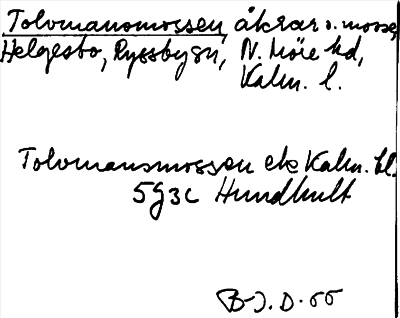 Tolvmansmossen, åkrar o. mosse,
Helgesbo, Ryssbysn, N. Möre hd,
Kalm. l.
Tolvmansmossen ek Kalm. bl.
5g3c Hundhult
B-J. D. 55